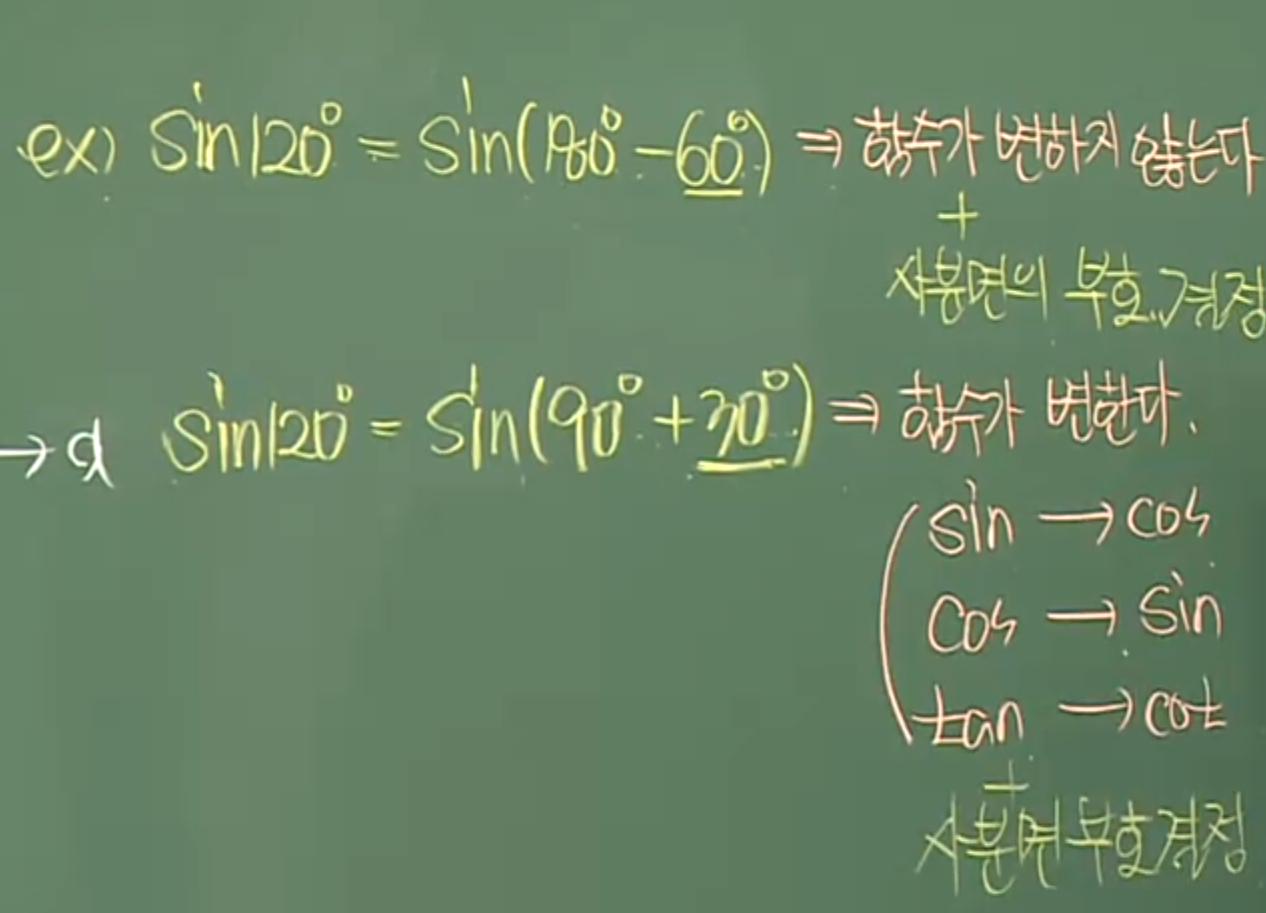 ex) sin120° = sin(180° - 60°) ⇒ 함수가 변하지 않는다
+
사분면의 부호 결정
→ d sin120° = sin(90° + 30°) ⇒ 함수가 변한다.
sin → cos
cos → sin
tan → cot
+
사분면 부호결정